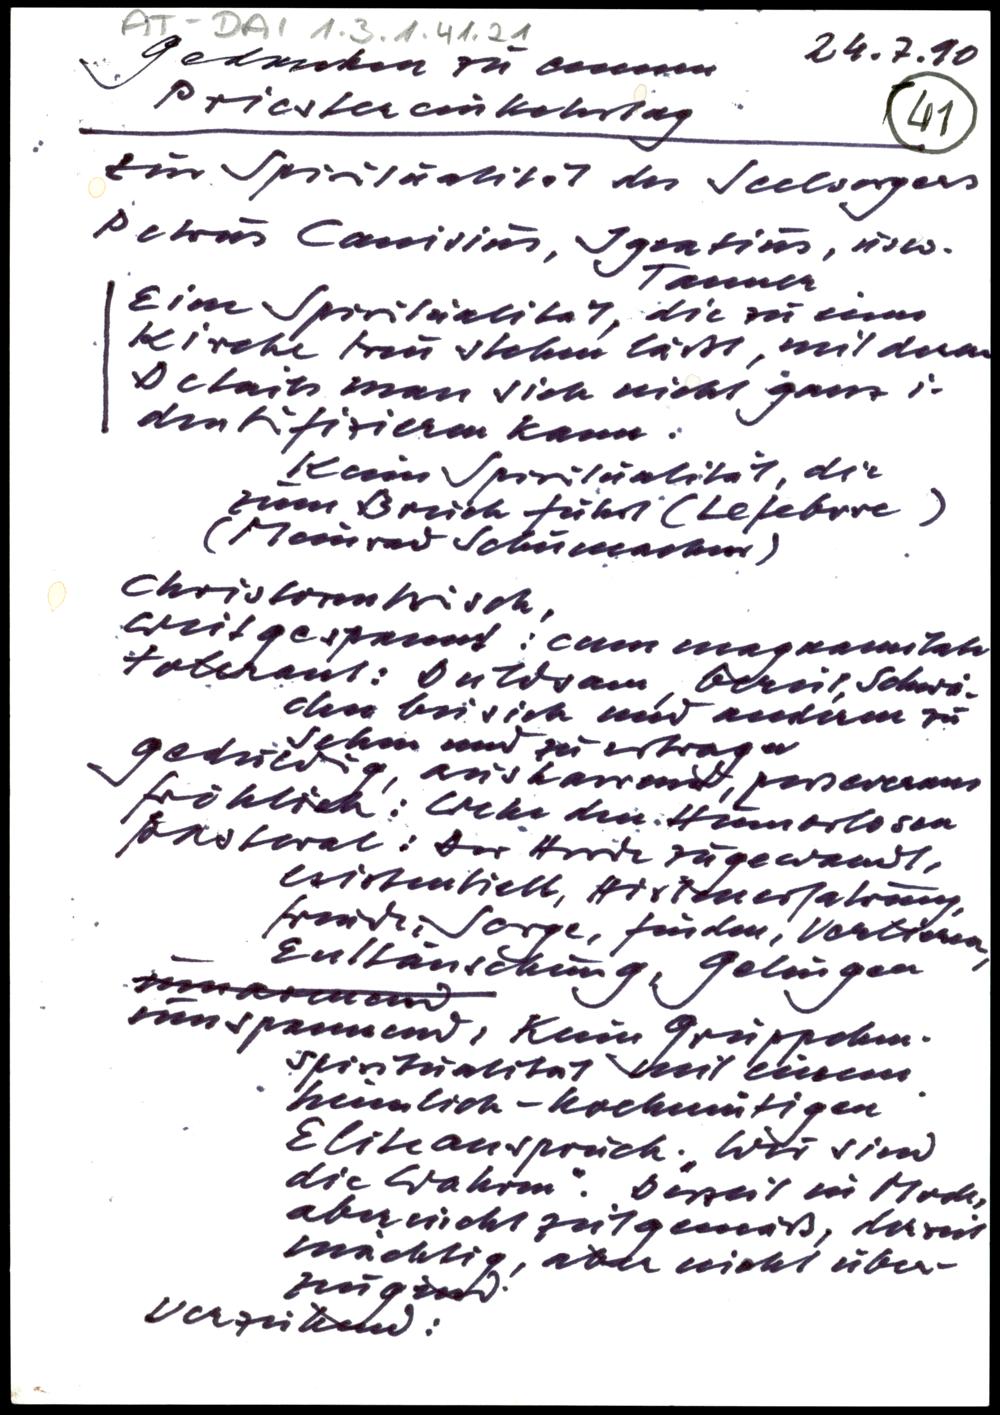 AT-DAI 1.3.1.41.21
24.7.90
Gedanken zu einem
Priestereinkehrtag
41
Zur Spiritualität des Seelsorgers
Petrus Canisius, Ignatius, usw.
Tanner
Eine Spiritualität, die zu einer
Kirche treu stehen läßt, mit deren
Details man sich nicht ganz i-
dentifizieren kann.
Keine Spiritualität, die
zum Bruch führt (Lefebvre)
(Meinrad Schumacher)
Christozentrisch,
weitgespannt: cum magnanimitate
tolerant: Duldsam, bereit, Schwä-
chen bei sich und anderen zu
sehen und zu ertragen
geduldig, ausharrend, perseverans
fröhlich: Wehe den Humorlosen
pastoral: Der Herde zugewandt,
existentiell, Hirtenerfahrung,
Freude, Sorge, finden, Verlieren,
Enttäuschung, Gelingen
umarmend
umspannend, Keine Gruppchen-
spiritualität mit einem
heimlich-hochmütigen
Eliteanspruch. "Wir sind
die Wahren". Derzeit in Mode,
aber nicht zeitgemäß, derzeit
mächtig, aber nicht über-
zeugend.
Verzeihend: